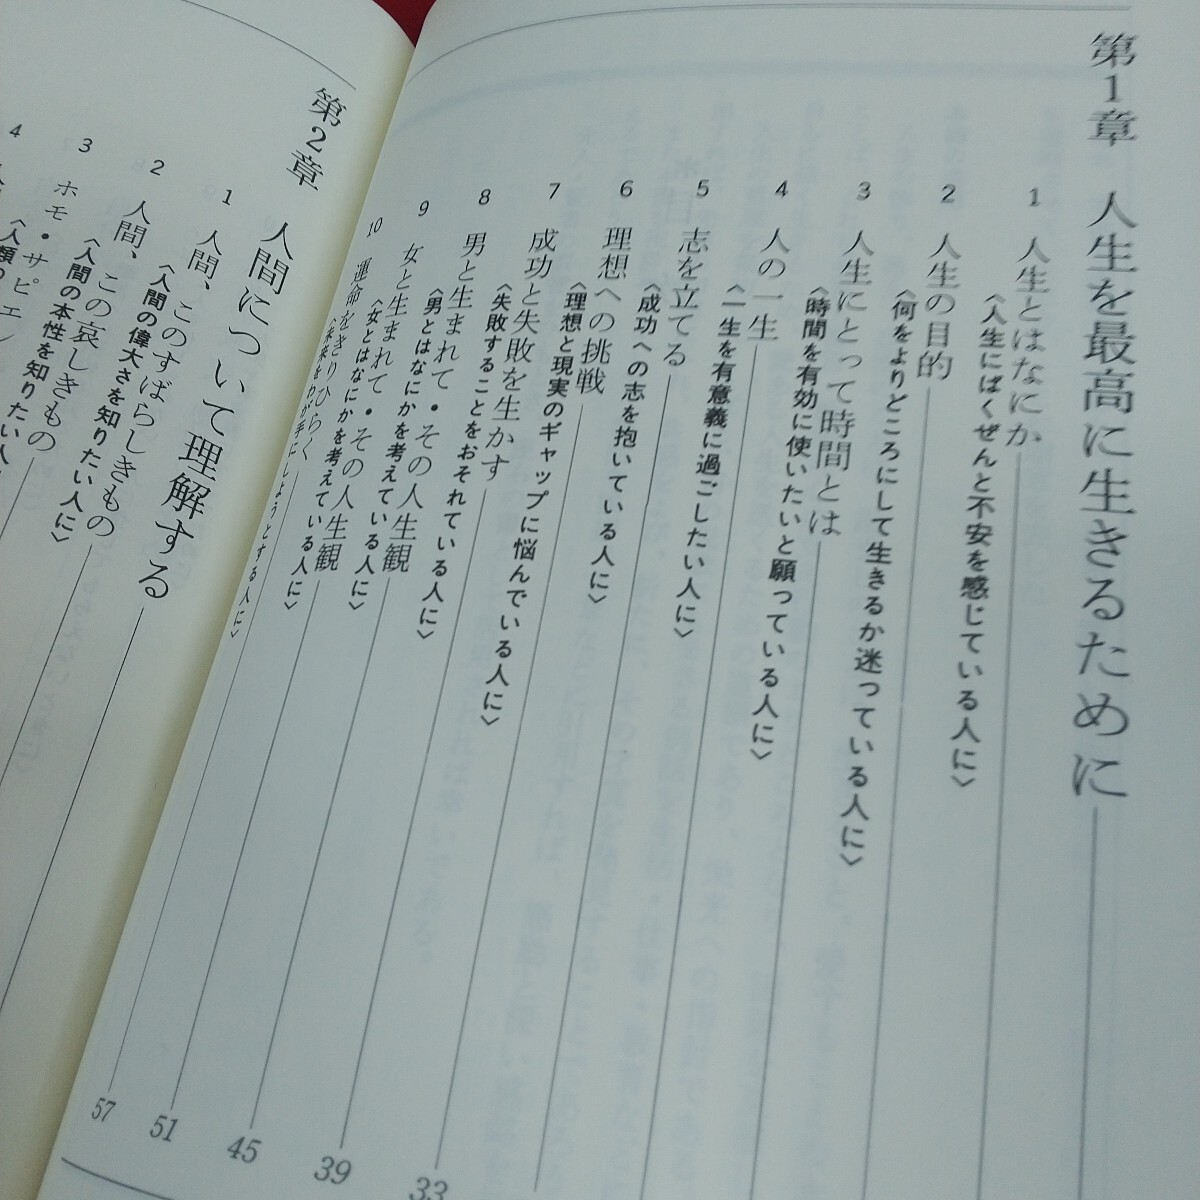 第1章 人生を最高に生きるために
1 人生とはなにか
〈人生にばくぜんと不安を感じている人に〉
2 人生の目的
〈何をよりどころにして生きるか迷っている人に〉
3 人生にとって時間とは
〈時間を有効に使いたいと願っている人に〉
4 人の一生
〈一生を有意義に過ごしたい人に〉
5 志を立てる
〈成功への志を抱いている人に〉
6 理想への挑戦
〈理想と現実のギャップに悩んでいる人に〉
7 成功と失敗を生かす
〈失敗することをおそれている人に〉 33
8 男と生まれて・その人生観
〈男とはなにかを考えている人に〉 39
9 女と生まれて・その人生観
〈女とはなにかを考えている人に〉 45
10 運命をきりひらく 51
〈未来をわが手にしようとする人に〉 57
第2章 人間について理解する
1 人間、このすばらしきもの
〈人間の偉大さを知りたい人に〉
2 人間、この哀しきもの
〈人間の本性を知りたい人に〉
3 ホモ・サピエン
〈人類の
4